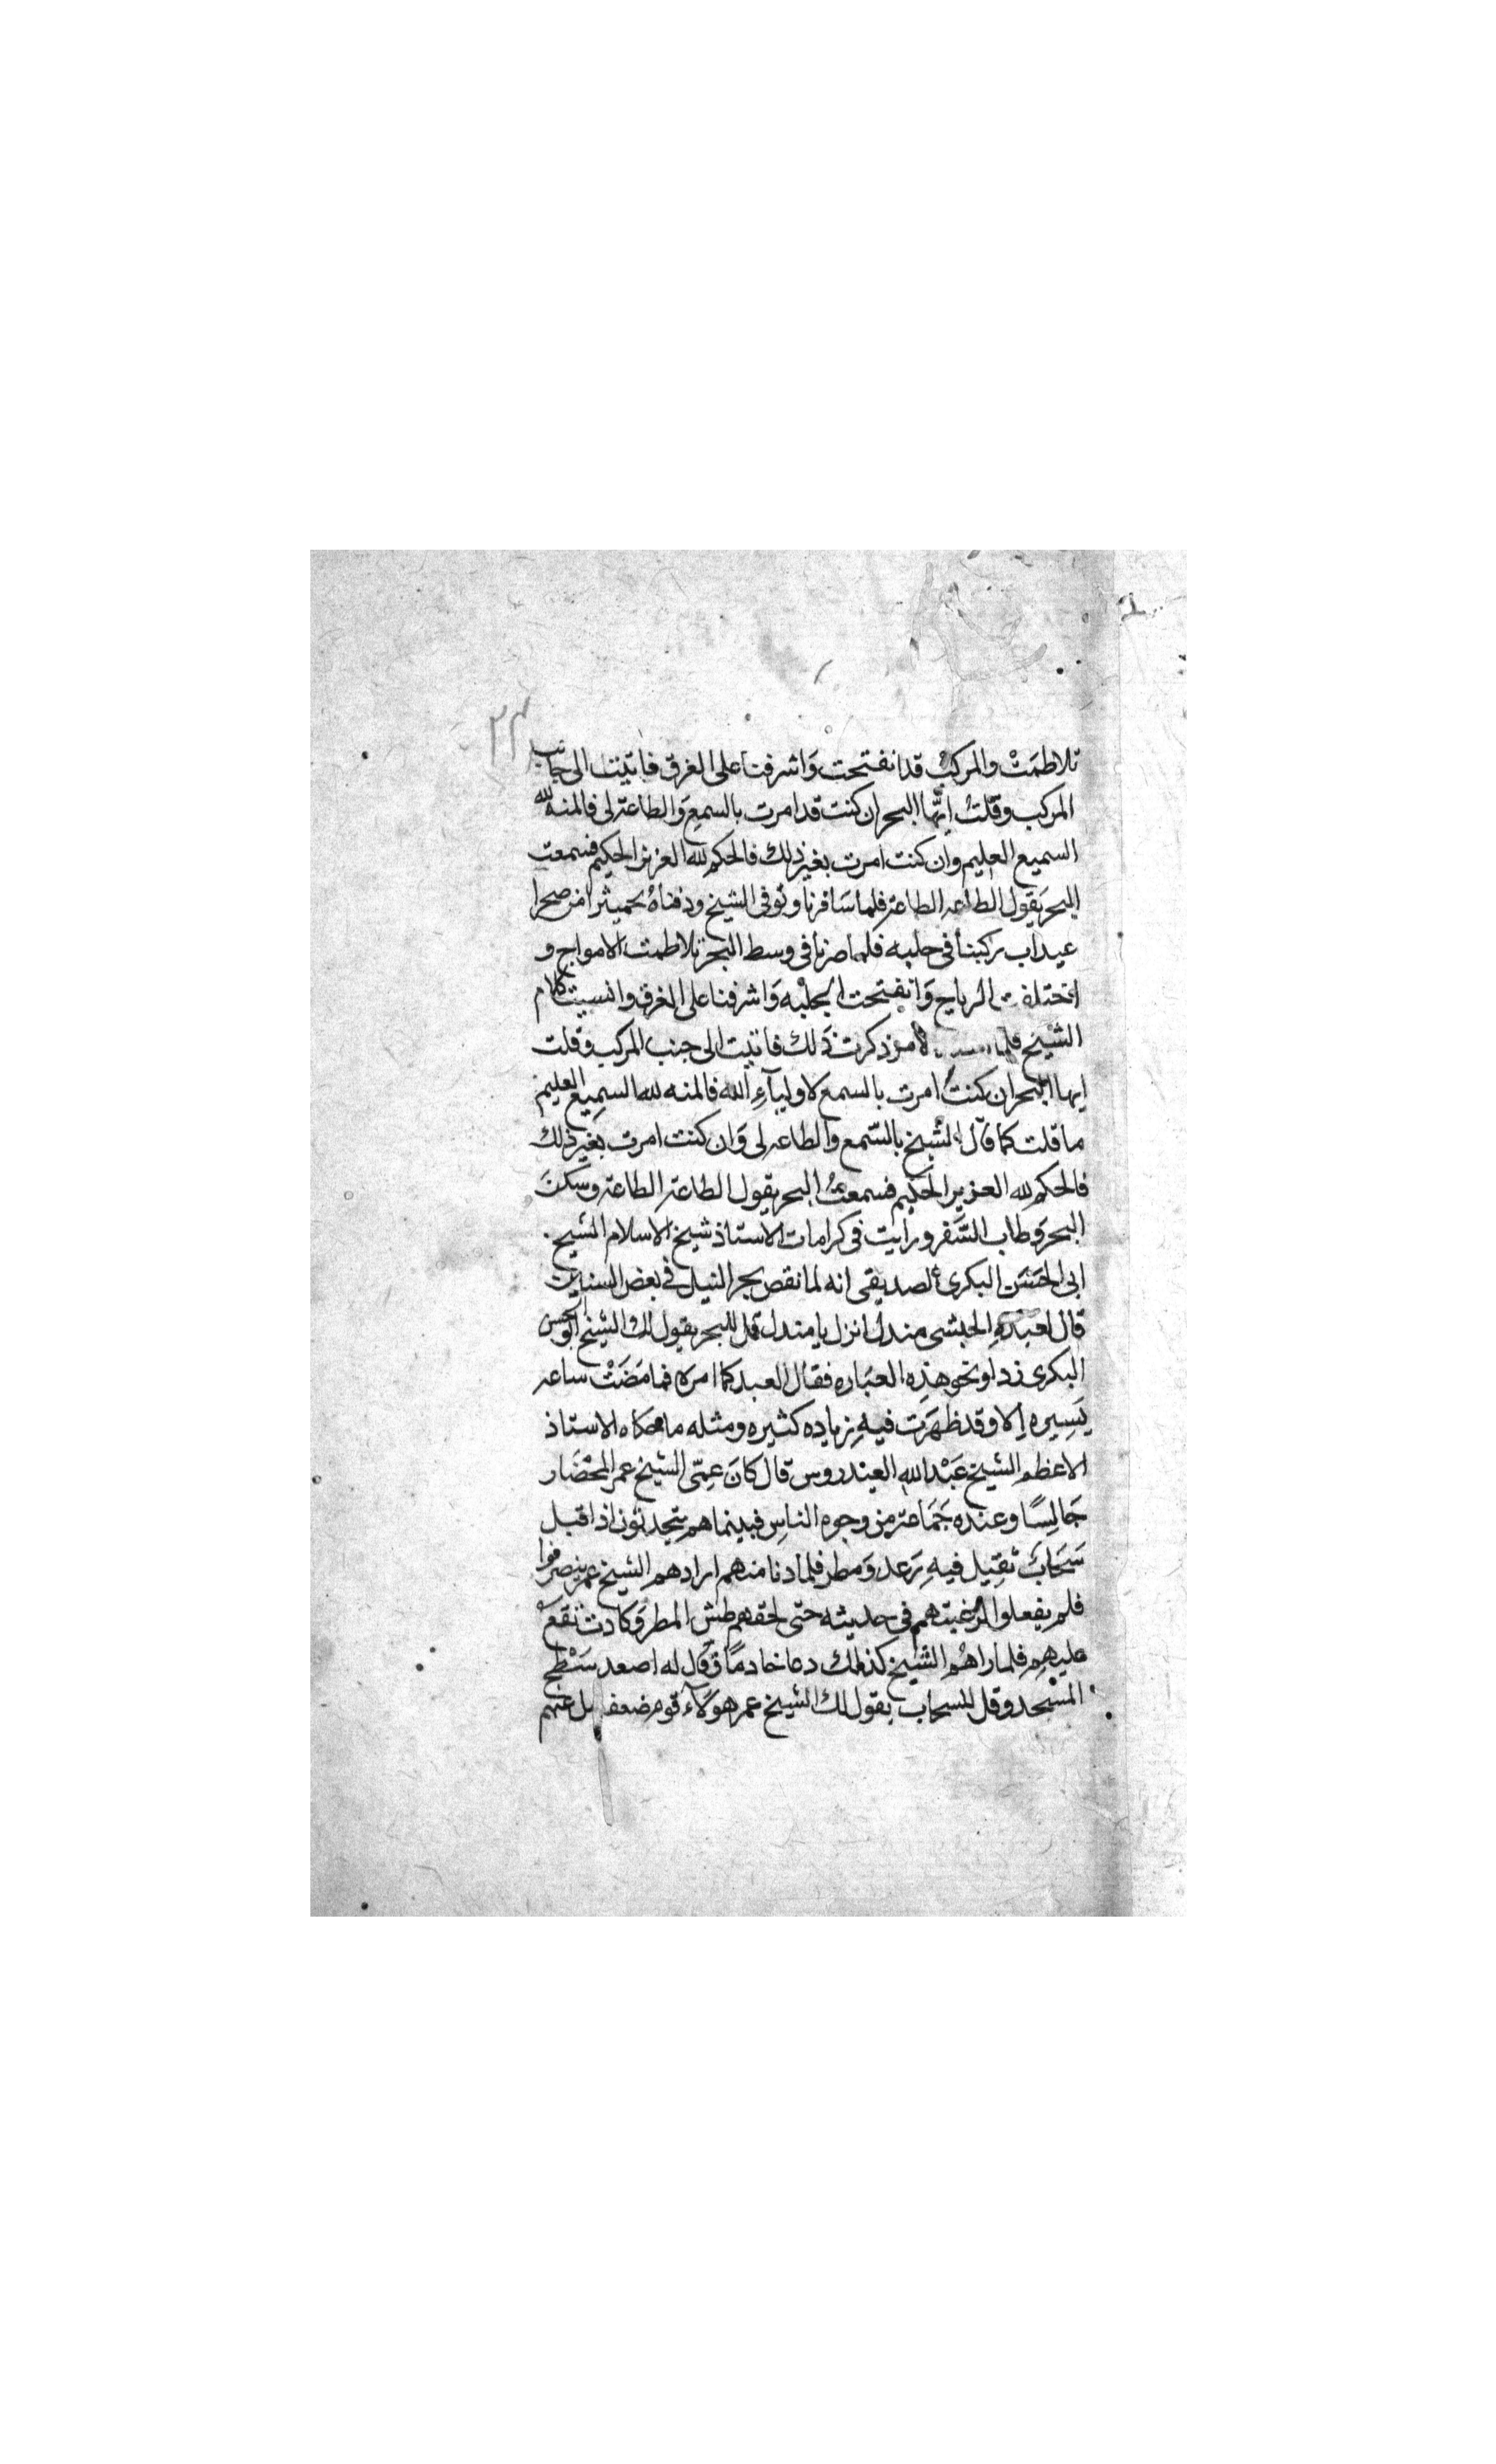 ٢٣
تلاطمَتْ والمركبُ قد انفتحت وَاشرفنا على الغرق فاتيت الى جانب
المركب وقلتُ ايّها البحر ان كنت قد امرت بالسمِع وَالطاعة لى فالمنه لله
السميع العليم وان كنت امرت بغير ذلك فالحكم لله العزيز الحكيم فسمعت
البحر يَقول الطاعه الطاعة فلما سَافرنا وتوفى الشيخ ودفناهُ بحميثرا من صحرا
عيداب ركبنا فى جلبه فلما صرنا فى وسط البحر تلاطمت الامواج و
اختلفت الرياح وَانفتحت الجلبْه وَاشرفنا على الغرق وانسيت كلام
الشيْخ فلما الامر ذكرت ذَلك فاتيت الى جنب المركب وقلت
ايها البحر ان كنتُ امرت بالسمع لاوليآءِ الله فالمنه لله السمِيع العليم
ما قلت كما قال الشيخ بالسّمع والطاعه لى وَان كنت امرت بغير ذلك
فالحكم لله العزيز الحكيم فسمعتُ البحر يقول الطاعة الطاعة وسَكنَ
البحر وَطاب السَّفر ورايت فى كرامات الاستاذ شيخ الاسلام الشيخ
ابى الحَسَن البكرى الصديقى انه لما نقص بحر النيل فى بعض السنين
قال لعَبْدهِ الحبشى مندل انزل يا مندل قل للبحر يقول لك الشيخ ابو الحسن
البكرى زد او نحو هذِه العبَاره فقال العبد كما امره فما مَضَتْ ساعه
يَسِيره اِلا وقد ظهَرَت فيهِ زياده كثيره ومثله ما حكاه الاستاذ
الاعظم الشيخ عَبْد الله العيدروس قال كانَ عِمّى الشيخ عمر المحْضَار
جَالِسًا وعنده جَمَاعة مِن وجوه الناسِ فبينما هم يتحدثون اذ اقبل
سَحَابٌ ثقيل فيهِ رَعد وَمطر فلما دنا منهم ارادهم الشيخ عمر ينصرفوا
فلم يفعلوا لرغبتهم فى حديثه حتى لحقهم طش المطر وَكادت تقعْ
عليهِم فلما راهُم الشيخ كذلك دعا خادمًا وَقال له اصعد سَطْح
المسْجد وقل للسحاب يقول لك الشيخ عمر هوَلآء قوم ضعفا عنهم